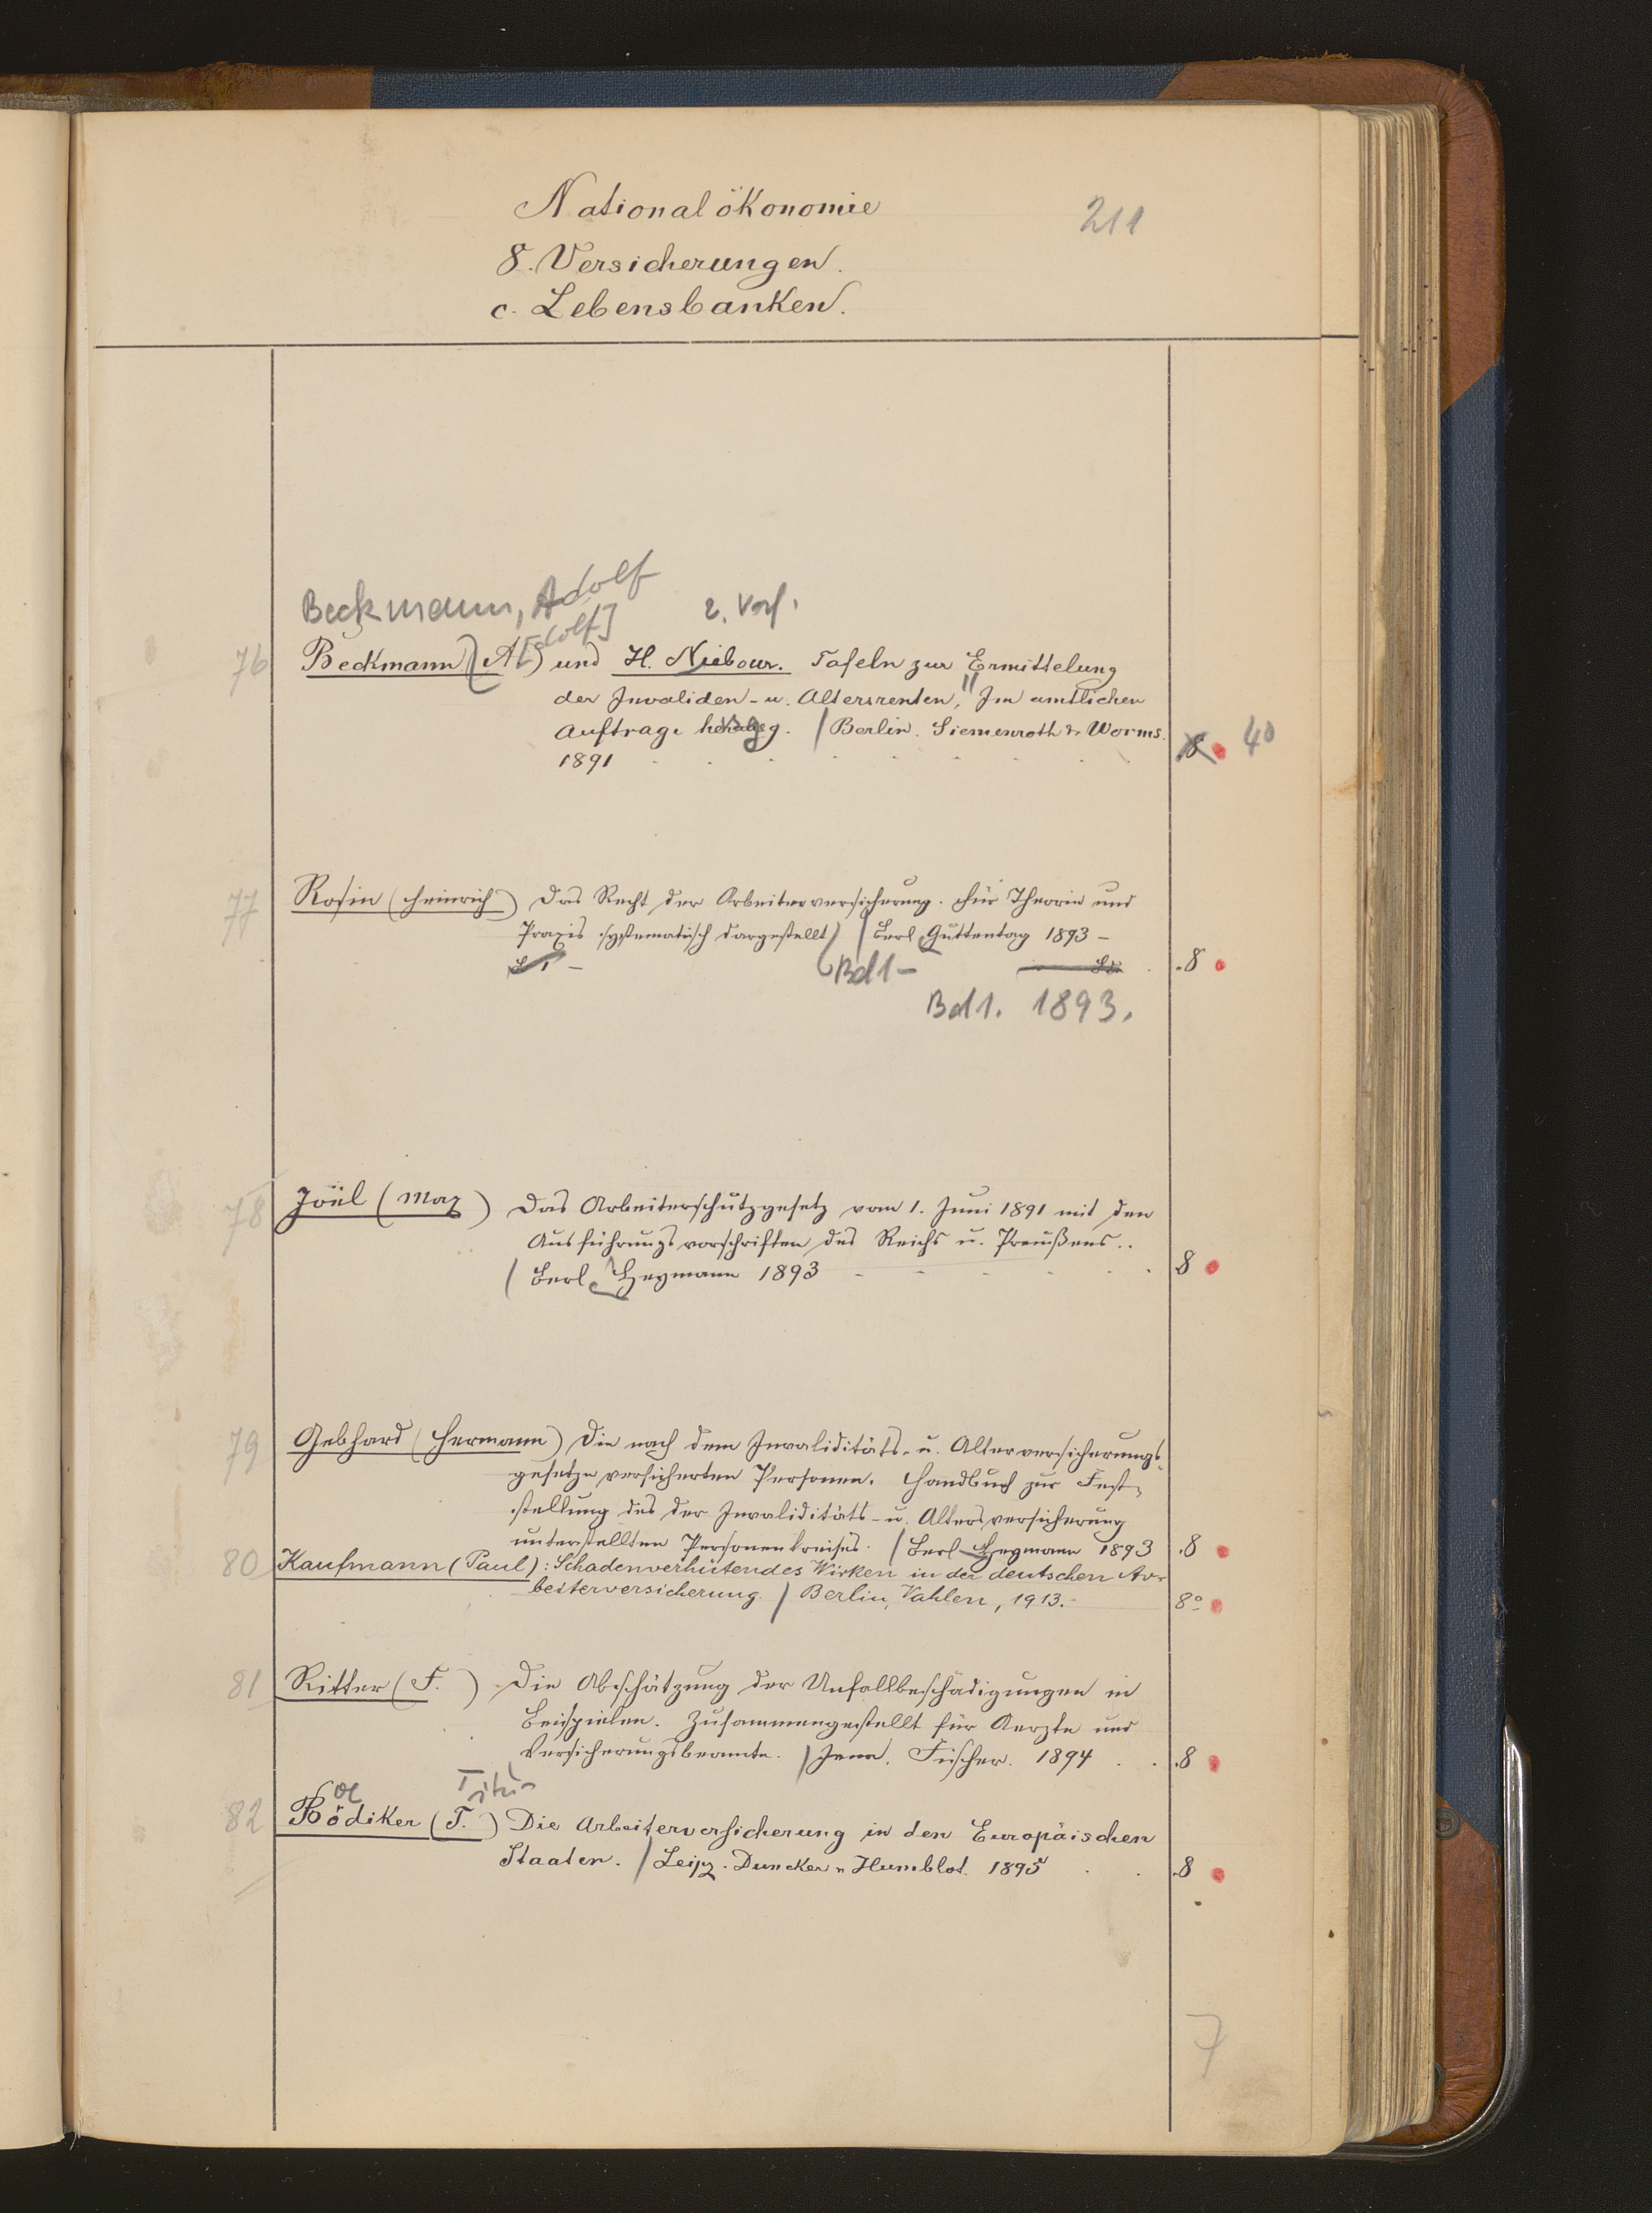 Nationalökonomie
211
8. Versicherungen.
c. Lebensbanken.
Beckmann, Adolf
2. Verf.
76 Beckmann (A[dolf]) und H. Niebour. Tafeln zur Ermittelung
der Invaliden- u. Altersrenten, Im amtlichen
Auftrage g. / Berlin. Siemenroth & Worms.
1891 8 4°
77 Rosin (Heinrich) Das Recht der Arbeiterversicherung. Für Theorie und
Praxis systematisch dargestellt / Berl. Guttentag 1893 –
Bd 1 – 8
Bd 1. 1893.
78 Joël (Max) Das Arbeiterschutzgesetz vom 1. Juni 1891 mit den
Ausführungsvorschriften des Reichs u. Preußens..
/ Berl. Heymann 1893 8
79 Gebhard (Hermann) Die nach dem Invaliditäts- u. Altersversicherungs-
gesetze versicherten Personen. Handbuch zur Fest-
stellung des der Invaliditäts- u. Altersversicherung
unterstellten Personenkreises. / Berl. Heymann 1893 8
80 Kaufmann (Paul): Schadenverhütendes Wirken in der deutschen Ar-
beiterversicherung. / Berlin, Vahlen, 1913. 8°
81 Ritter (F.) Die Abschätzung der Unfallbeschädigungen in
Beispielen. Zusammengestellt für Aerzte und
Versicherungsbeamte. / Jena. Fischer. 1894 8
oe
82 Bödiker (T.) Die Arbeiterversicherung in den Europäischen
Staaten. / Leipz. Duncker u Humblot. 1895 8
7